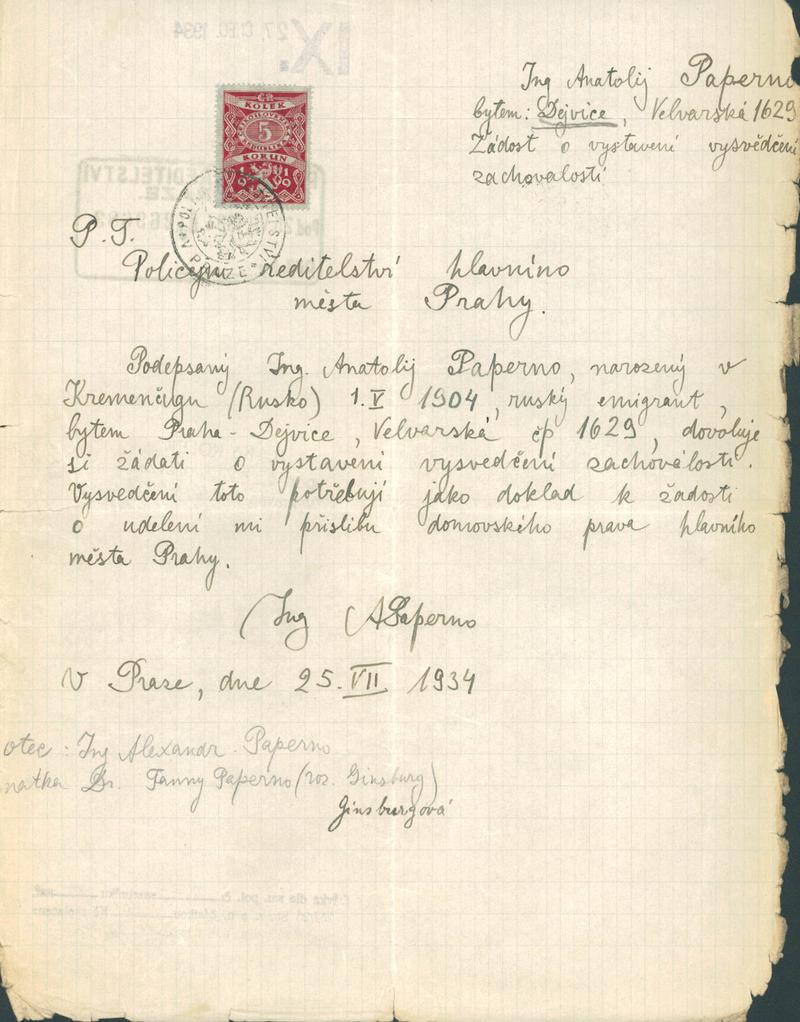 Ing Anatolij Paperno
bytem: Dejvice, Velvarská 1629
Žádost o vystavení vysvědčení
zachovalosti
27. ČEC. 1934
IX.
KOLEK
5
KORUN
P.T.
Policejní reditelství hlavníno
města Prahy.
Podepsaný Ing. Anatolij Paperno, narozený v
Kremenčugu (Rusko) 1. V 1904, ruský emigrant,
bytem Praha-Dejvice, Velvarská čp 1629, dovoluje
si žádati o vystavení vysvedčení zachovalosti.
Vysvedčení toto potřebují jako doklad k žadosti
o udelení mi příslibu domovského prava hlavního
města Prahy.
Ing APaperno
V Praze, dne 25. VII 1934
otec: Ing Alexandr Paperno
matka Dr. Fanny Paperno (roz. Ginsburg)
Ginsburgová